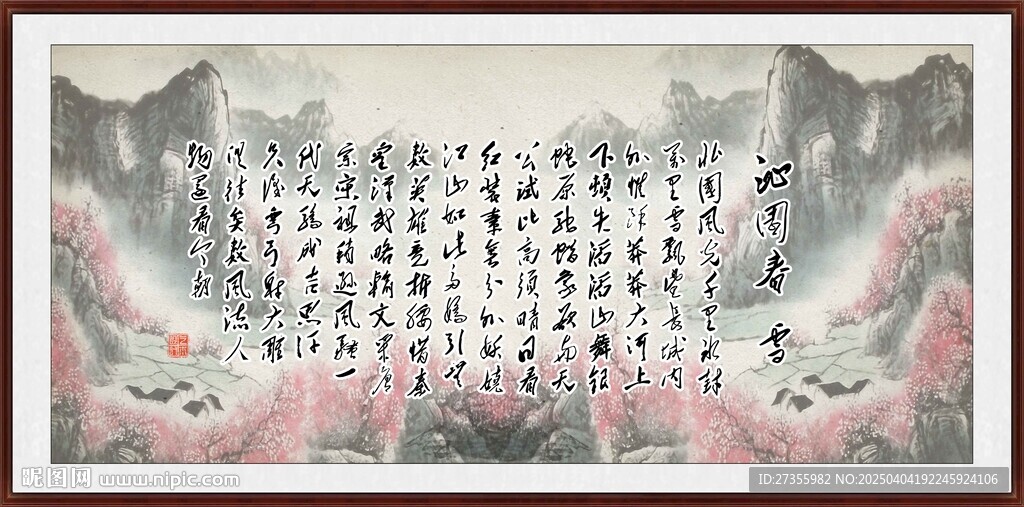 沁園春 雪
北國風光千里冰封
萬里雪飄望長城内
外惟餘莽莽大河上
下頓失滔滔山舞銀
蛇原馳蜡象欲與天
公試比高須晴日看
紅裝素裹分外妖嬈
江山如此多嬌引無
數英雄競折腰惜秦
皇漢武略輸文采唐
宗宋祖稍遜風騷一
代天驕成吉思汗
只識彎弓射大雕
俱往矣數風流人
物還看今朝
昵图网 www.nipic.com
ID:27355982 NO:20250404192245924106